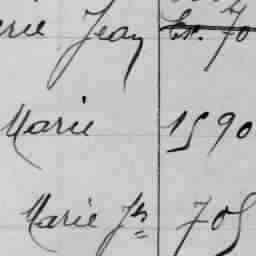 erie Jean Ex. 70
Marie 1590
Marie Jh 705